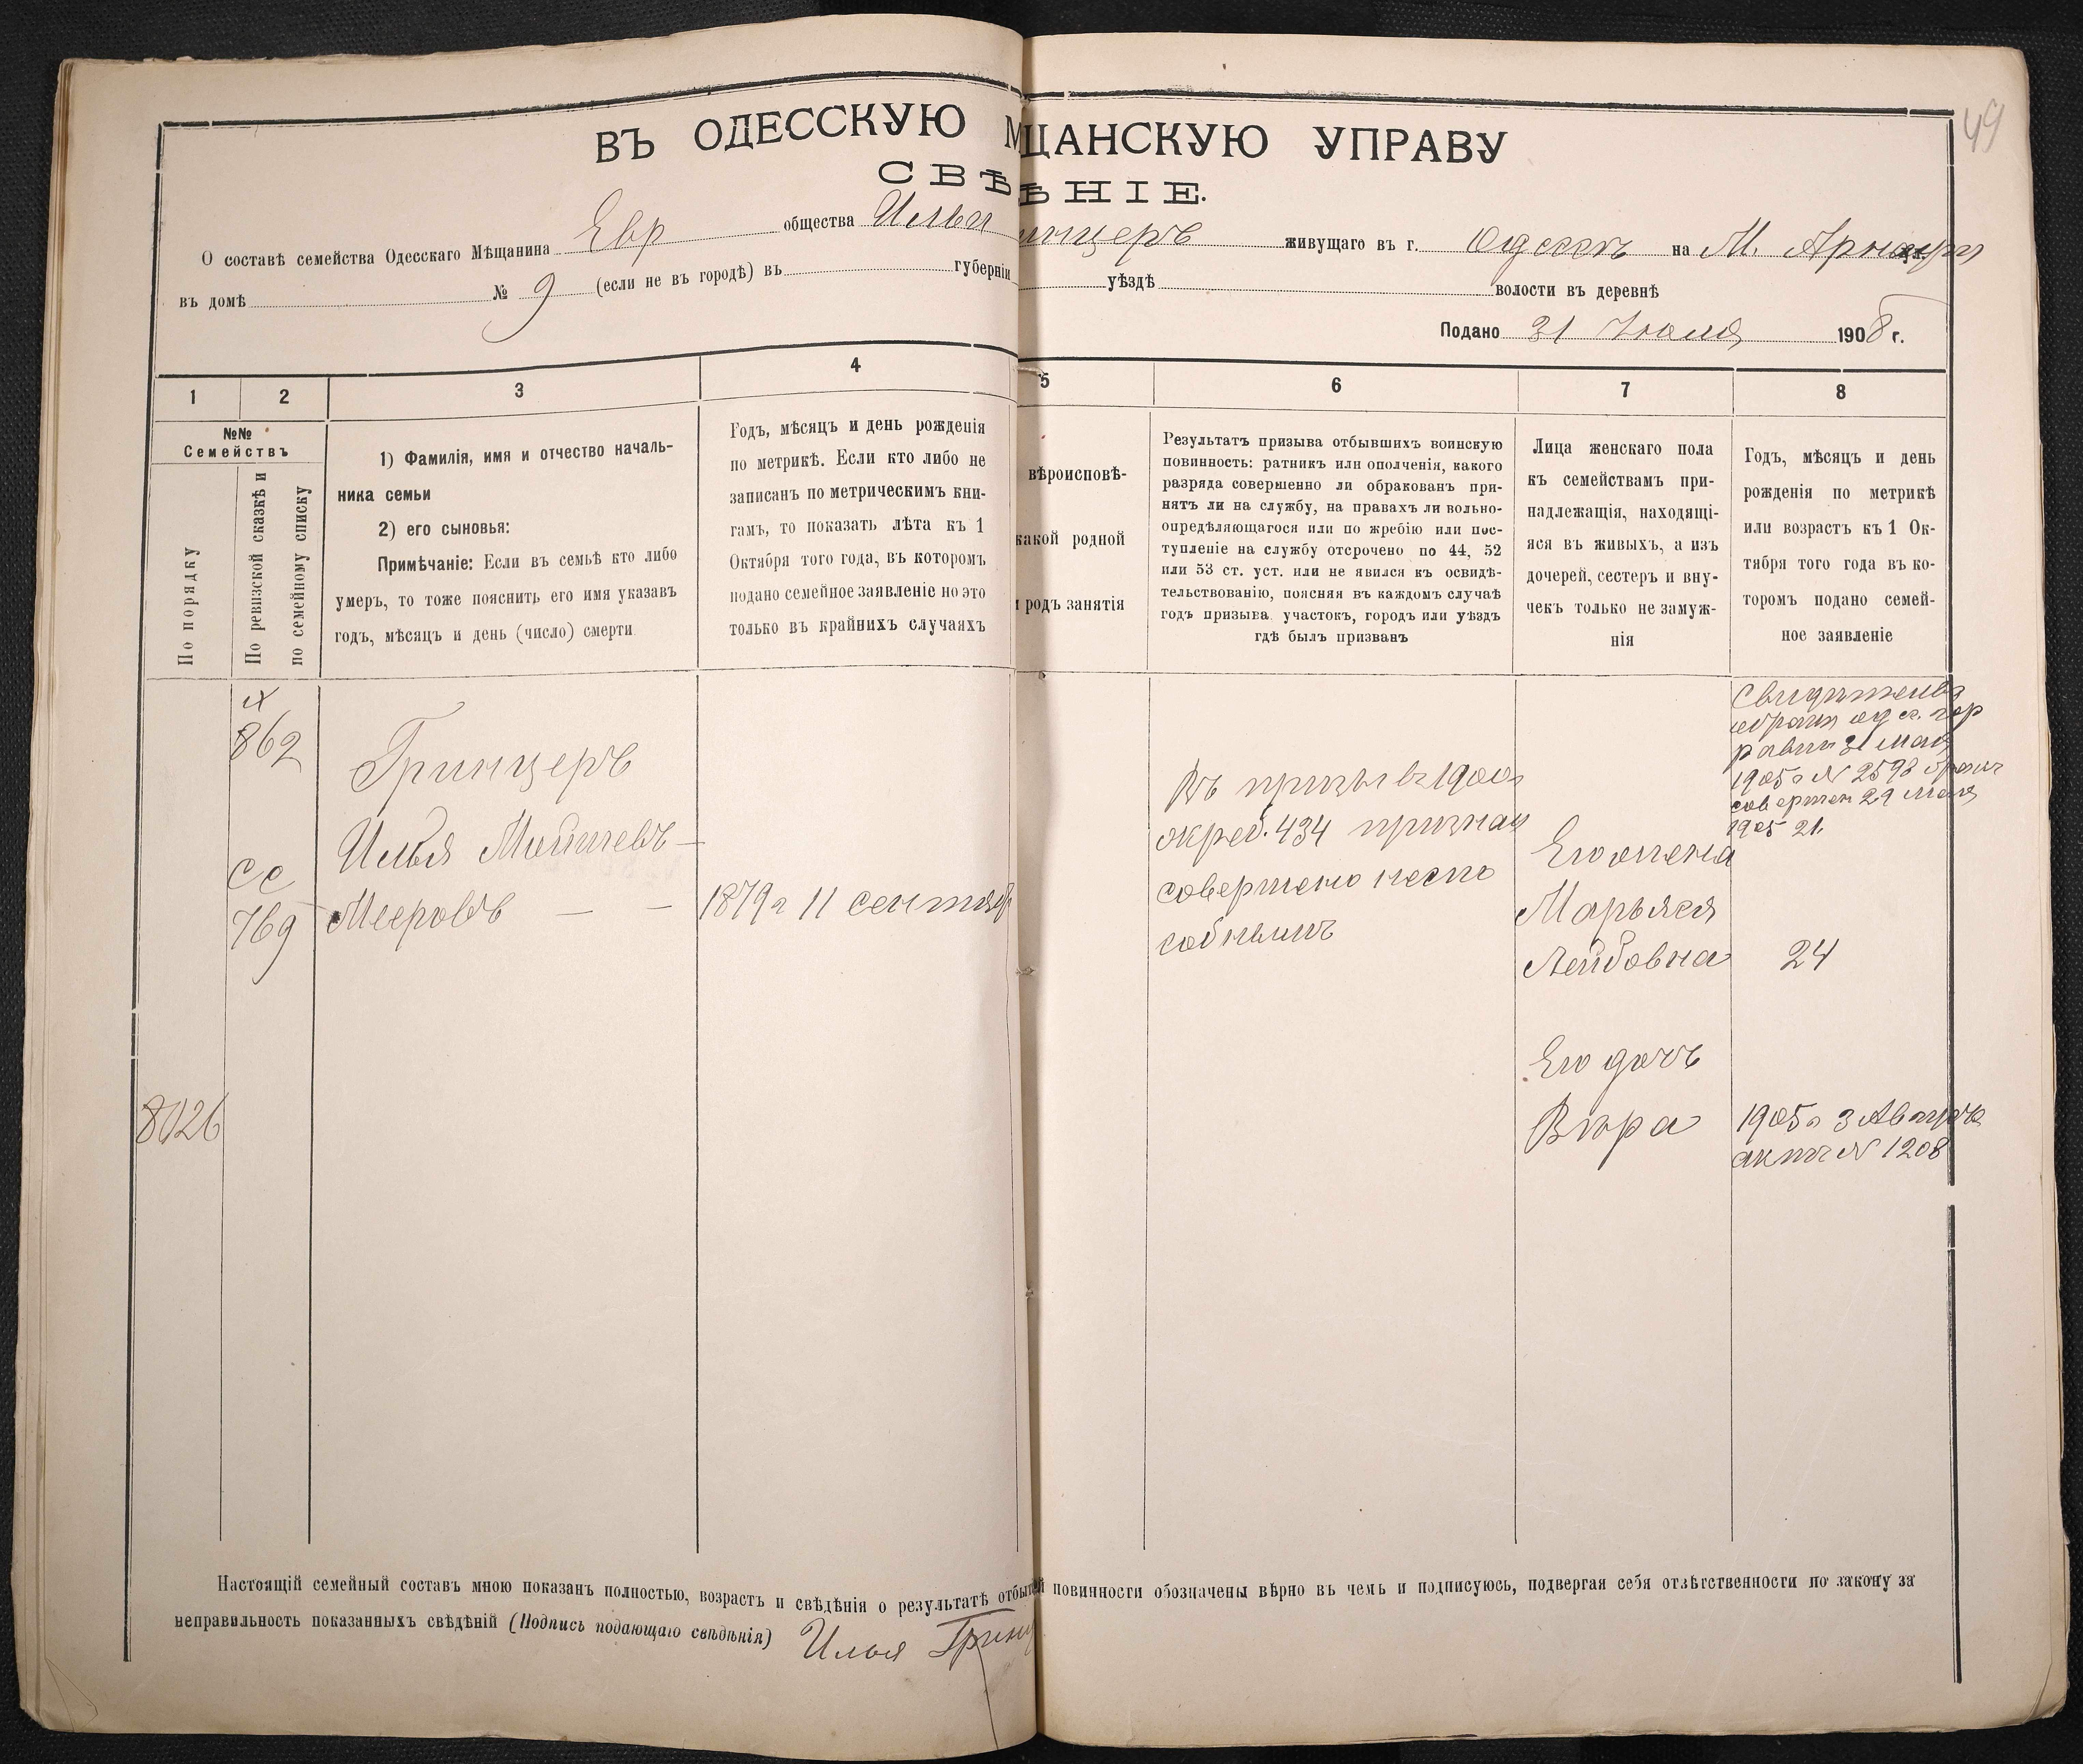 49
ВЪ ОДЕССКУЮ М ЩАНСКУЮ УПРАВУ
СВѢ ѢНІЕ.
О составѣ семейства Одесскаго Мѣщанина Евр общества Ильи инцеръ живущаго въ г. Одессѣ на М. Арнаут
въ домѣ № 9 (если не въ городѣ) въ губерніи уѣздѣ волости въ деревнѣ
Подано 31 Іюля 1908 г.
1 2 3 4 5 6 7 8
№№
Семействъ
По порядку
По ревизской сказкѣ и
по семейному списку
1) Фамилія, имя и отчество началь-
ника семьи
2) его сыновья:
Примѣчаніе: Если въ семьѣ кто либо
умеръ, то тоже пояснить его имя указавъ
годъ, мѣсяцъ и день (число) смерти
Годъ, мѣсяцъ и день рожденія
по метрикѣ. Если кто либо не
записанъ по метрическимъ кни-
гамъ, то показать лѣта къ 1
Октября того года, въ которомъ
подано семейное заявленіе но это
только въ крайнихъ случаяхъ
вѣроисповѣ-
какой родной
и родъ занятія
Результатъ призыва отбывшихъ воинскую
повинность: ратникъ или ополченія, какого
разряда совершенно ли обракованъ при-
нятъ ли на службу, на правахъ ли вольно-
опредѣляющагося или по жребію или пос-
тупленіе на службу отсрочено по 44, 52
или 53 ст. уст. или не явился къ освидѣ-
тельствованію, поясняя въ каждомъ случаѣ
годъ призыва. участокъ, городъ или уѣздъ
гдѣ былъ призванъ
Лица женскаго пола
къ семействамъ при-
надлежащія, находящі-
яся въ живыхъ, а изъ
дочерей, сестеръ и вну-
чекъ только не замуж-
нія
Годъ, мѣсяцъ и день
рожденія по метрикѣ
или возрастъ къ 1 Ок-
тября того года въ ко-
торомъ подано семей-
ное заявленіе
862
се
769
8026
Гринцеръ
Илья Мойшевъ —
Мееровъ — —
1879 г 11 сентябр
Въ призывъ 1900 г
окреб. 434 признан
совершено неспо
собнымъ
Его жена
Марьяся
Лейбовна
24
Его дочь
Вѣра
равин 31 Мая
1905 г N 2598 бракъ
совершен 29 Мая
1905 г.
1905 г 3 Августа
актъ N 1208
Настоящій семейный составъ мною показанъ полностью, возрастъ и свѣдѣнія о результатѣ отбы й повинности обозначены вѣрно въ чемъ и подписуюсь, подвергая себя отвѣтственности по закону за
неправильность показанныхъ свѣдѣній (Подпись подающаго свѣдѣнія) Илья Гринц